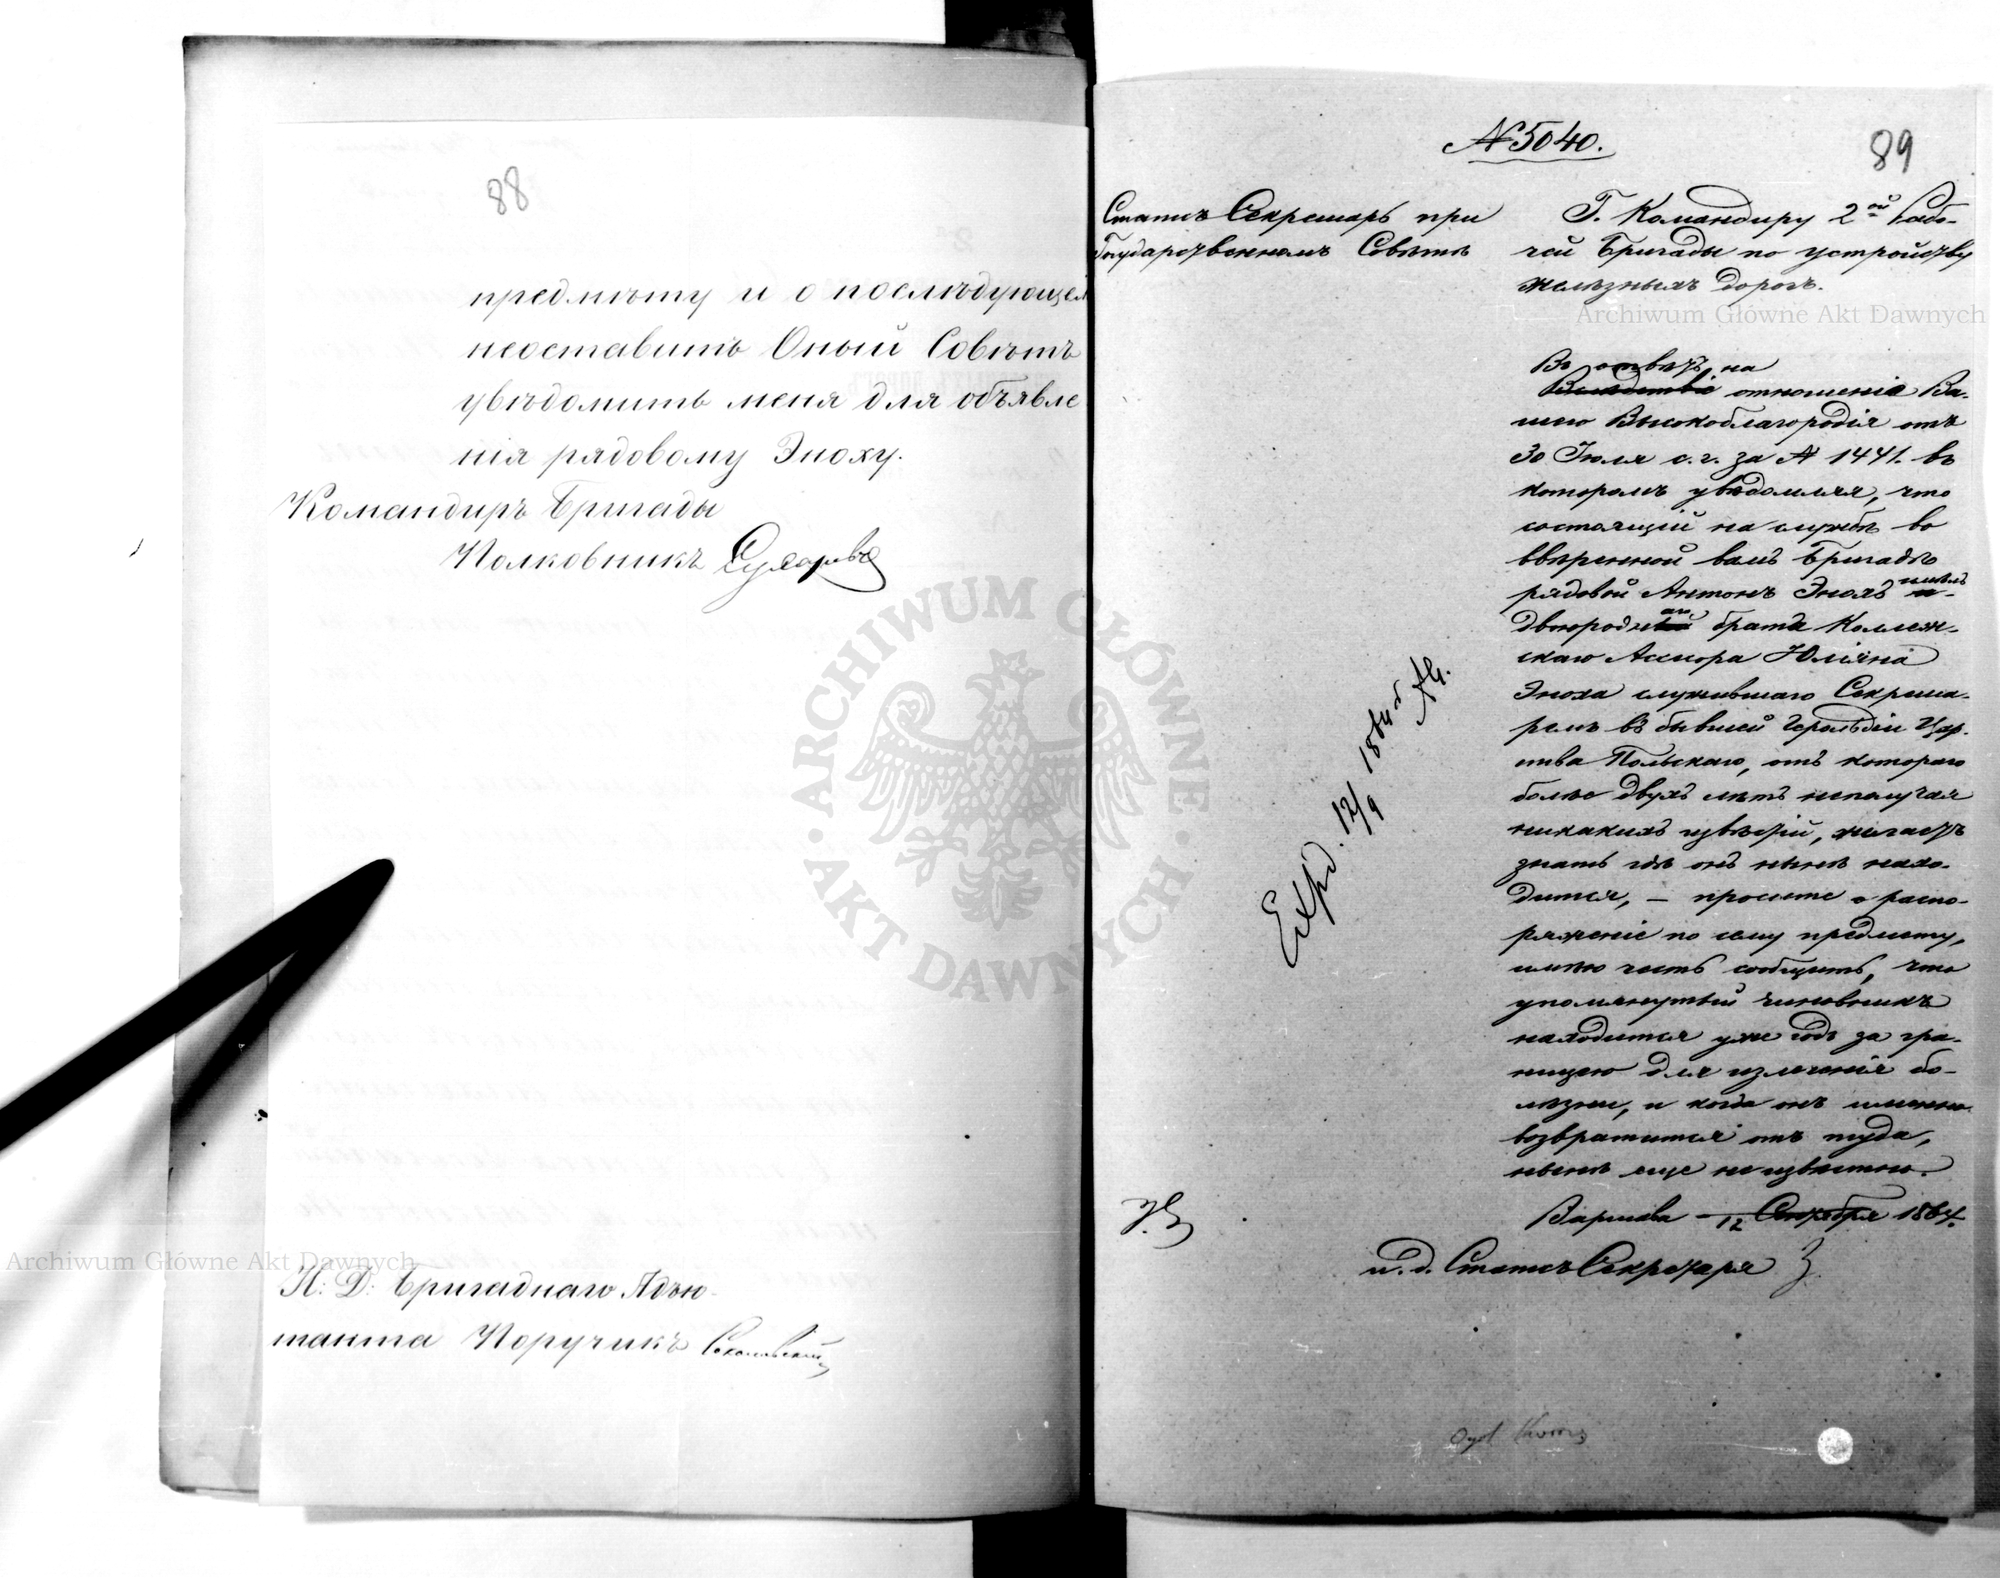 88
предмѣту и о послѣдующемъ
неоставить Оный Совѣтъ
увѣдомить меня для объявле
нія рядовому Эноху.
Командиръ Бригады
Полковникъ
И: Д: Бригаднаго Адъю-
танта Поручикъ
№ 5040.
89
Статсъ Секретарь при
Государственномъ Совѣтѣ
Г. Командиру 2ой Рабо-
чей Бригады по устройству
желѣзныхъ дорогъ.
Въ отвѣтъ на
Вслѣдствіе отношенія Ва-
шего Высокоблагородія отъ
30 Іюля с. г. за № 1441. въ
которомъ увѣдомляя, что
состоящій на службѣ во
ввѣренной вамъ Бригадѣ
рядовой Антонъ Энохъ имѣлъ
двоюроднаго брата Коллеж-
скаго Ассесора Юліяна
Эноха служившаго Секрета-
ремъ въ бывшей Герольдіи Цар-
ства Польскаго, отъ котораго
болѣе двухъ лѣтъ неполучая
никакихъ извѣстій, желаетъ
знать гдѣ онъ нынѣ нахо-
дится, — просите о распо-
ряженіе по сему предмету,
имѣю честь сообщить, что
упомянутый чиновникъ
находится уже годъ за гра-
ницею для излеченія бо-
лѣзни, и когда онъ именно
возвратится отъ туда,
нынѣ еще не извѣстно.
Варшава 12 Сентября 1864.
и. д. Статсъ Секретаря
Expd. 12/9 1864
Archiwum Główne Akt Dawnych
Archiwum Główne Akt Dawnych
ARCHIWUM GŁÓWNE AKT DAWNYCH